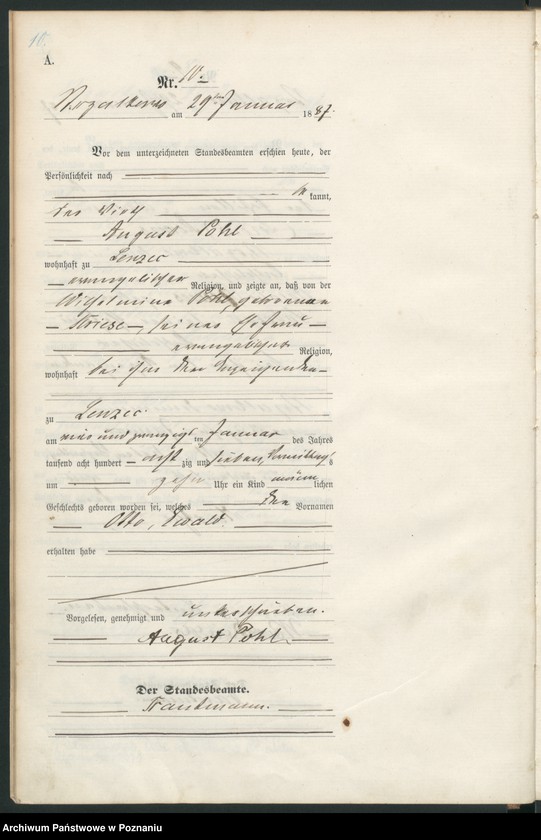 10.
A.
Nr. 10.
am 29ten Januar 1887.
Vor dem unterzeichneten Standesbeamten erschien heute, der
Persönlichkeit nach
be kannt,
der Wirth
August Pohl
wohnhaft zu Lenzec
evangelischer Religion, und zeigte an, daß von der
Wilhelmine Pohl, geborenen
Kriese, seiner Ehefrau
evangelischer Religion,
wohnhaft bei ihm dem Anzeigenden
zu Lenzec
am ein und zwanzigsten Januar des Jahres
tausend acht hundert acht zig und sieben, Vormittags
um zehn Uhr ein Kind männ lichen
Geschlechts geboren worden sei, welches den Vornamen
Otto, Ewald.
erhalten habe
Vorgelesen, genehmigt und unterschrieben.
August Pohl
Der Standesbeamte.
Archiwum Państwowe w Poznaniu